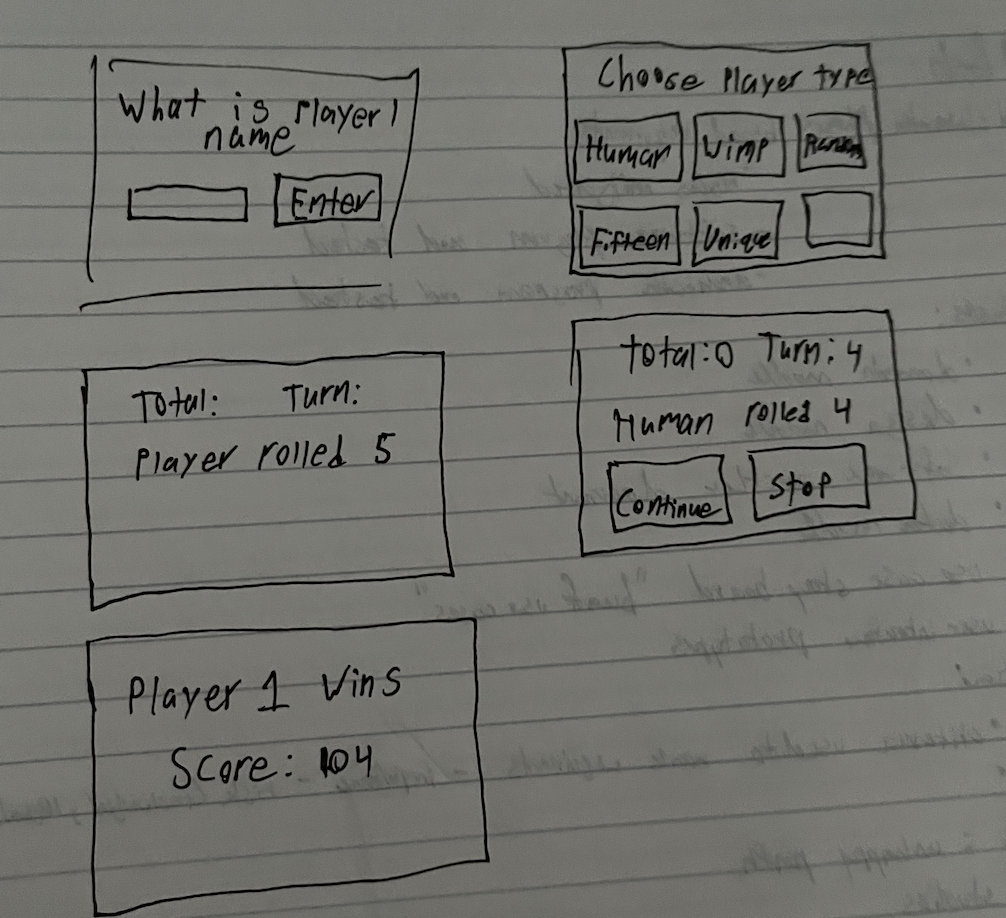 What is Player 1
name
Enter
Choose Player type
Human Wimp Random
Fifteen Unique
Total: Turn:
Player rolled 5
Total:0 Turn: 4
Human rolled 4
Continue Stop
Player 1 Wins
Score: 104